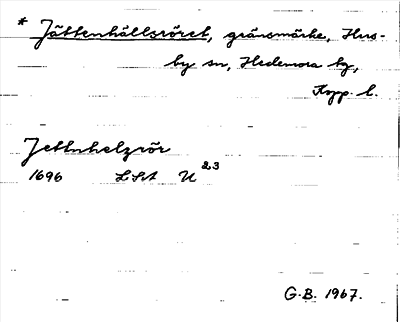 * Jättenhällsröret, gränsmärke, Hus-
by sn, Hedemora tg,
Kopp. l.
Jettnhelzrör
1696 LSA U 23
G.B. 1967.